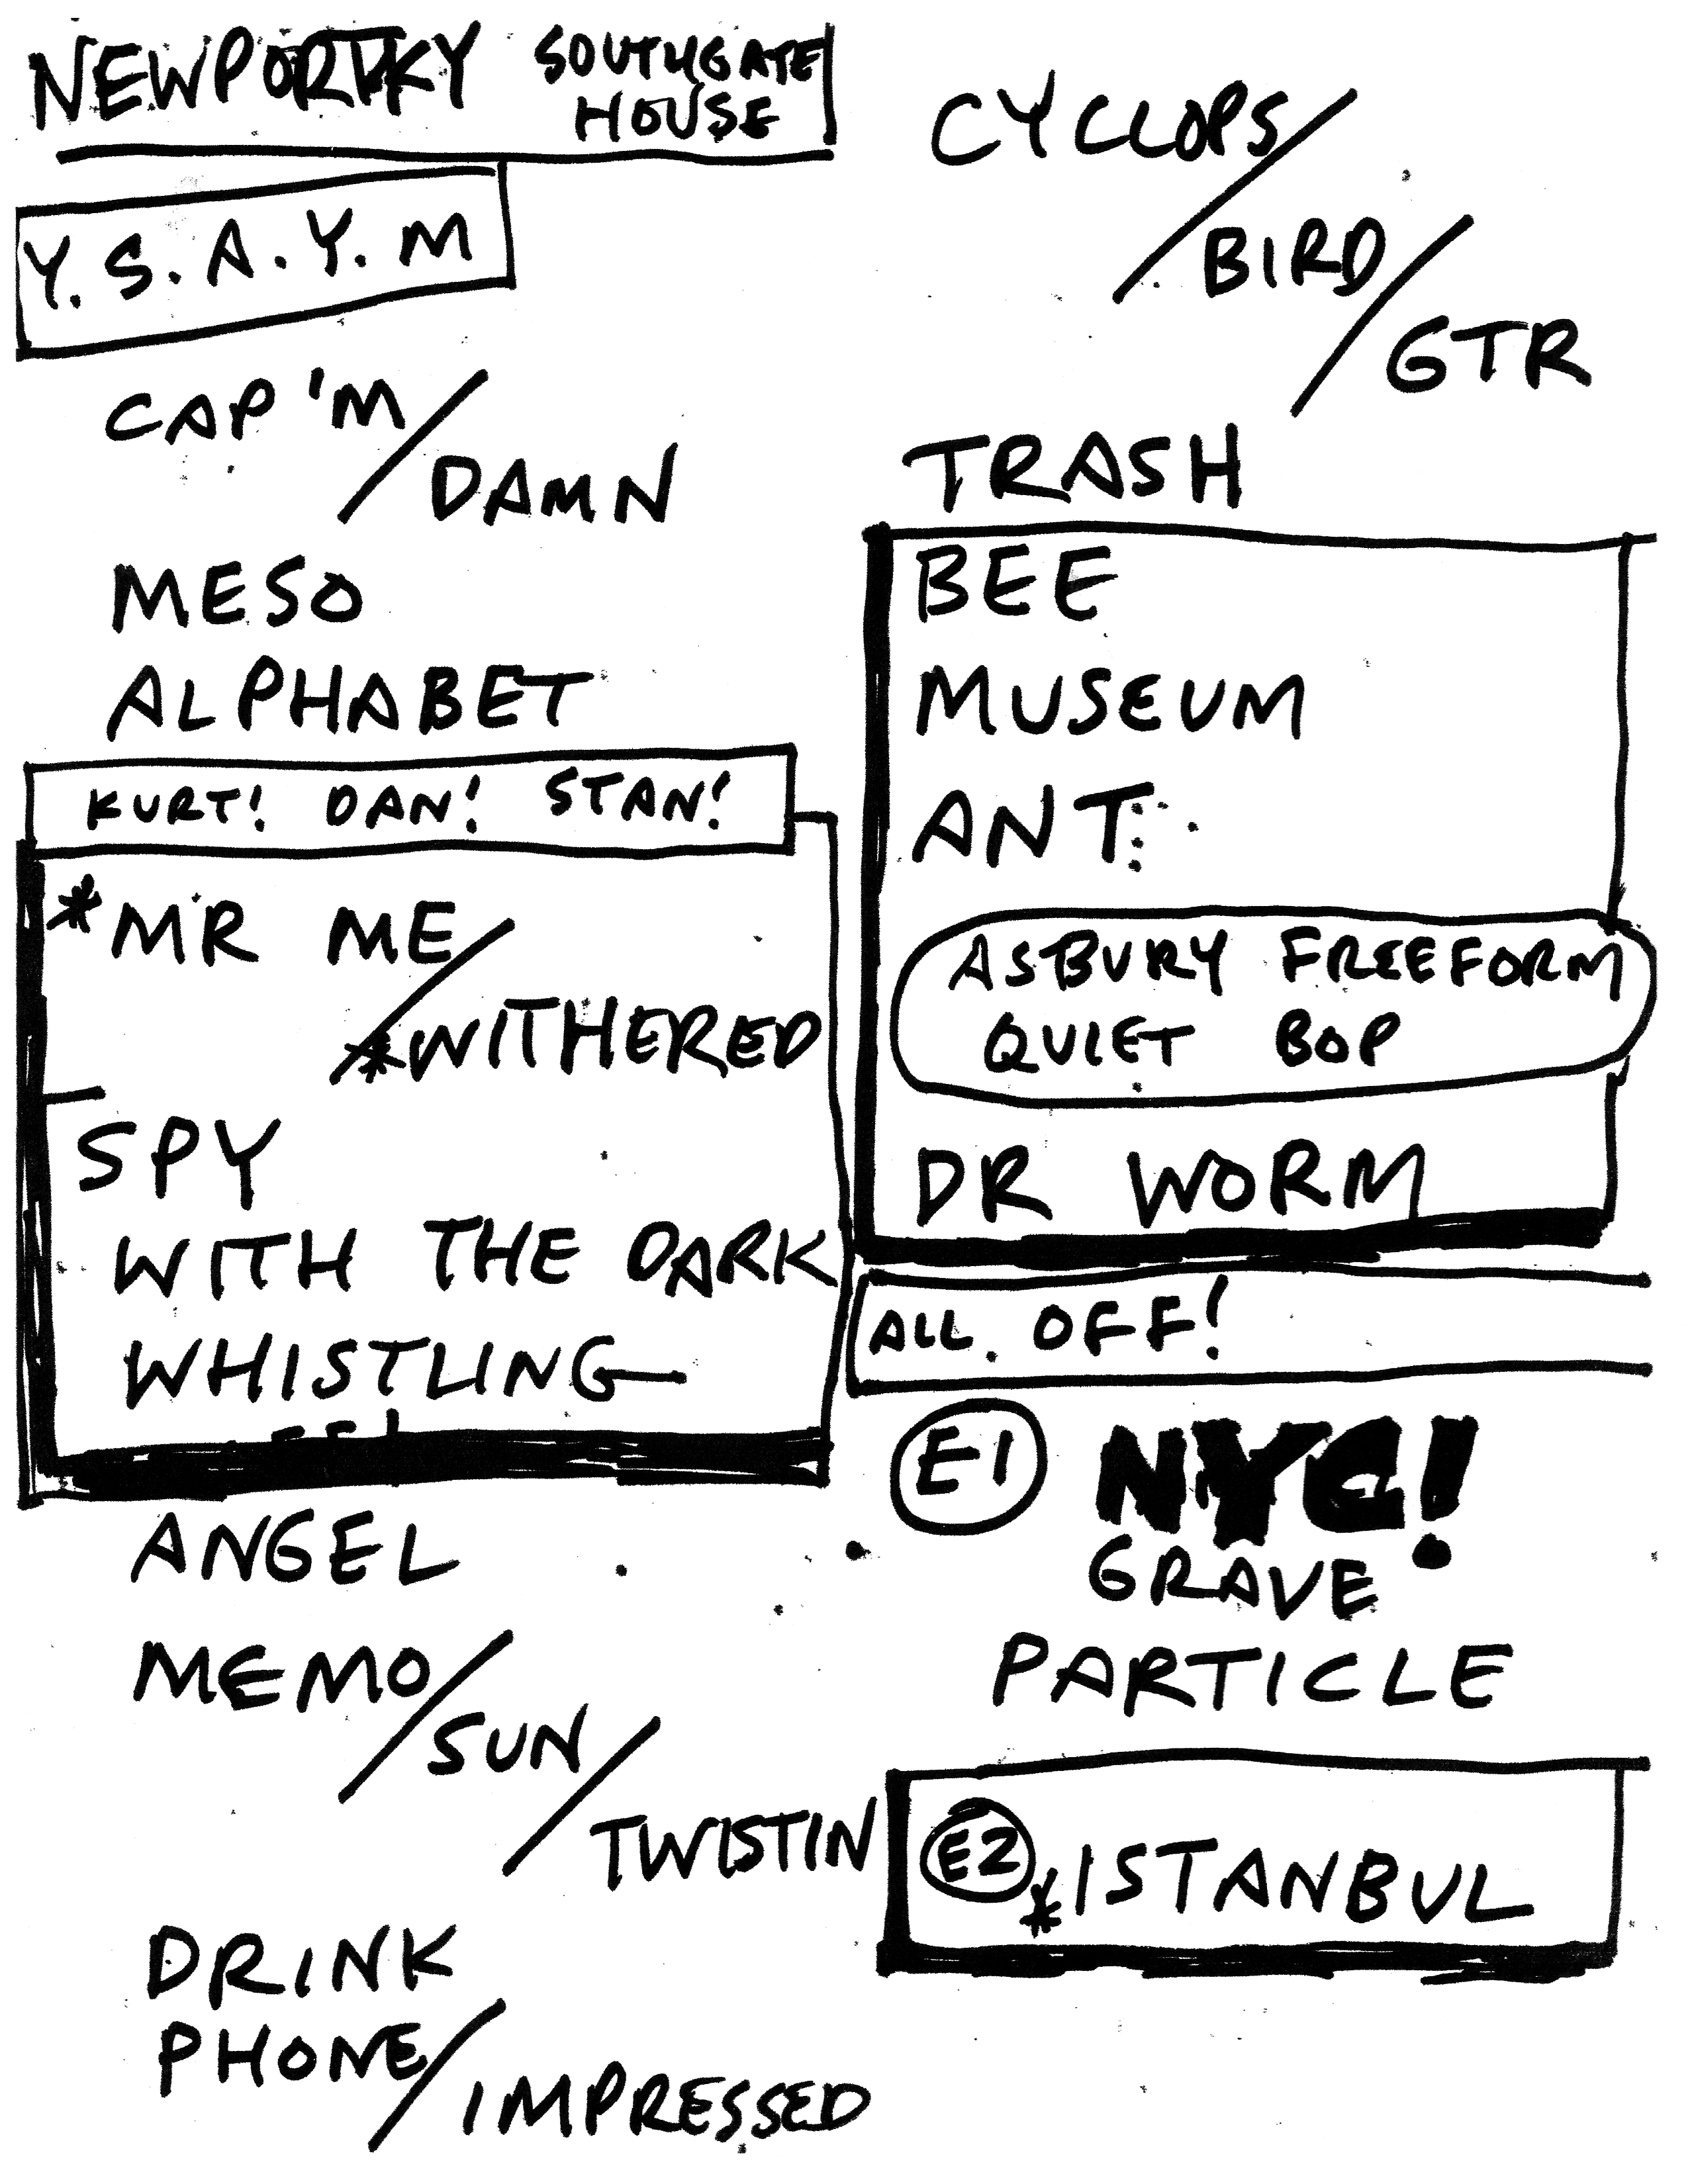 NEWPORT KY SOUTHGATE
HOUSE
Y. S. A. Y. M
CAP'M/
DAMN
MESO
ALPHABET
KURT! DAN! STAN!
*MR ME/
*WITHERED
SPY
WITH THE DARK
WHISTLING
ANGEL
MEMO/
SUN/
TWISTIN
DRINK
PHONE/
IMPRESSED
CYCLOPS/
BIRD/
GTR
TRASH
BEE
MUSEUM
ANT
ASBURY FREEFORM
QUIET BOP
DR WORM
ALL. OFF!
E1 NYC!
GRAVE
PARTICLE
E2 *ISTANBUL